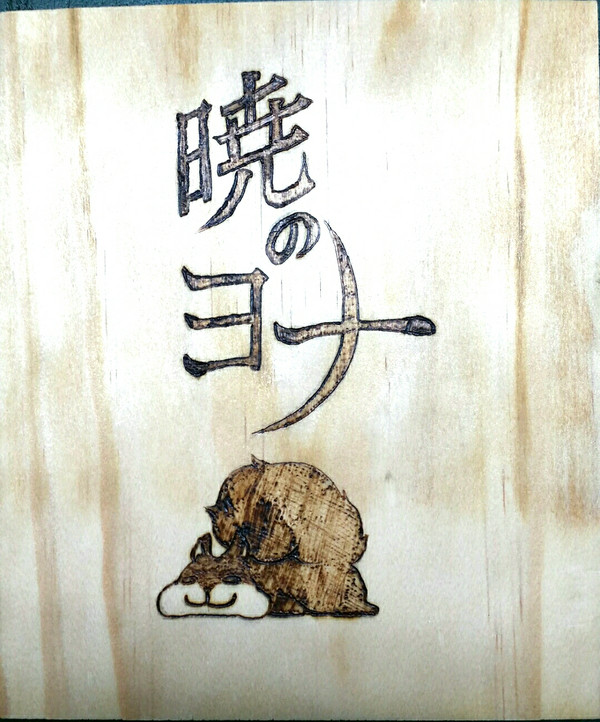 暁の
ヨナ